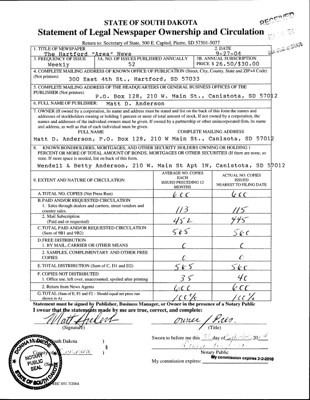 STATE OF SOUTH DAKOTA
Statement of Legal Newspaper Ownership and Circulation
RECEIVED
Return to: Secretary of State, 500 E. Capitol, Pierre, SD 57501-5077
1. TITLE OF NEWSPAPER
The Hartford "Area" News
2. DATE
9-27-04
3. FREQUENCY OF ISSUE
Weekly
3A. NO. OF ISSUES PUBLISHED ANNUALLY
52
3B. ANNUAL SUBSCRIPTION
PRICE $ 26.50/$30.00
4. COMPLETE MAILING ADDRESS OF KNOWN OFFICE OF PUBLICATION (Street, City, County, State and ZIP+4 Code)
(Not printers)
300 East 4th St., Hartford, SD 57033
5. COMPLETE MAILING ADDRESS OF THE HEADQUARTERS OR GENERAL BUSINESS OFFICES OF THE
PUBLISHER (Not printer)
P.O. Box 128, 210 W. Main St., Canistota, SD 57012
6. FULL NAME OF PUBLISHER:
Matt D. Anderson
7. OWNER (If owned by a corporation, its name and address must be stated and list on the back of this form the names and
addresses of stockholders owning or holding 1 percent or more of total amount of stock. If not owned by a corporation, the
names and addresses of the individual owners must be given. If owned by a partnership or other unincorporated firm, its name
and address, as well as that of each individual must be given.
FULL NAME
COMPLETE MAILING ADDRESS
Matt D. Anderson, P.O. Box 128, 210 W Main St., Canistota, SD 57012
8. KNOWN BONDHOLDERS, MORTGAGES, AND OTHER SECURITY HOLDERS OWNING OR HOLDING 1
PERCENT OR MORE OF TOTAL AMOUNT OF BONDS, MORTGAGES OR OTHER SECURITIES (If there are none, so
state. If more space is needed, list on back of this form.
Wendell & Betty Anderson, 210 W. Main St Apt 1N, Canistota, SD 57012
9. EXTENT AND NATURE OF CIRCULATION
AVERAGE NO. COPIES
EACH
ISSUED PRECEDING 12
MONTHS
ACTUAL NO. COPIES
ISSUED
NEAREST TO FILING DATE
A. TOTAL NO. COPIES (Net Press Run)
600
600
B. PAID AND/OR REQUESTED CIRCULATION
1. Sales through dealers and carriers, street vendors and
counter sales.
113
115
2. Mail Subscription
(Paid and or requested)
452
445
C. TOTAL PAID AND/OR REQUESTED CIRCULATION
(Sum of 9B1 and 9B2)
565
D. FREE DISTRIBUTION
1. BY MAIL, CARRIER OR OTHER MEANS
0
0
2. SAMPLES, COMPLIMENTARY AND OTHER FREE
COPIES
0
0
E. TOTAL DISTRIBUTION (Sum of C, D1 and D2)
565
F. COPIES NOT DISTRIBUTED
1. Office use, left over, unaccounted, spoiled after printing
35
40
2. Return from News Agents
G. TOTAL (Sum of E, F1 and F2 - Should equal net press run
shown in A)
Statement must be signed by Publisher, Business Manager, or Owner in the presence of a Notary Public
I swear that the statements made by me are true, correct, and complete:
(Signature)
owner / Pres
(Title)
Sworn to before me this
day of
Notary Public
My commission expires:
My commission expires 2-2-2010
South Dakota
County
NOTARY
PUBLIC
SEAL